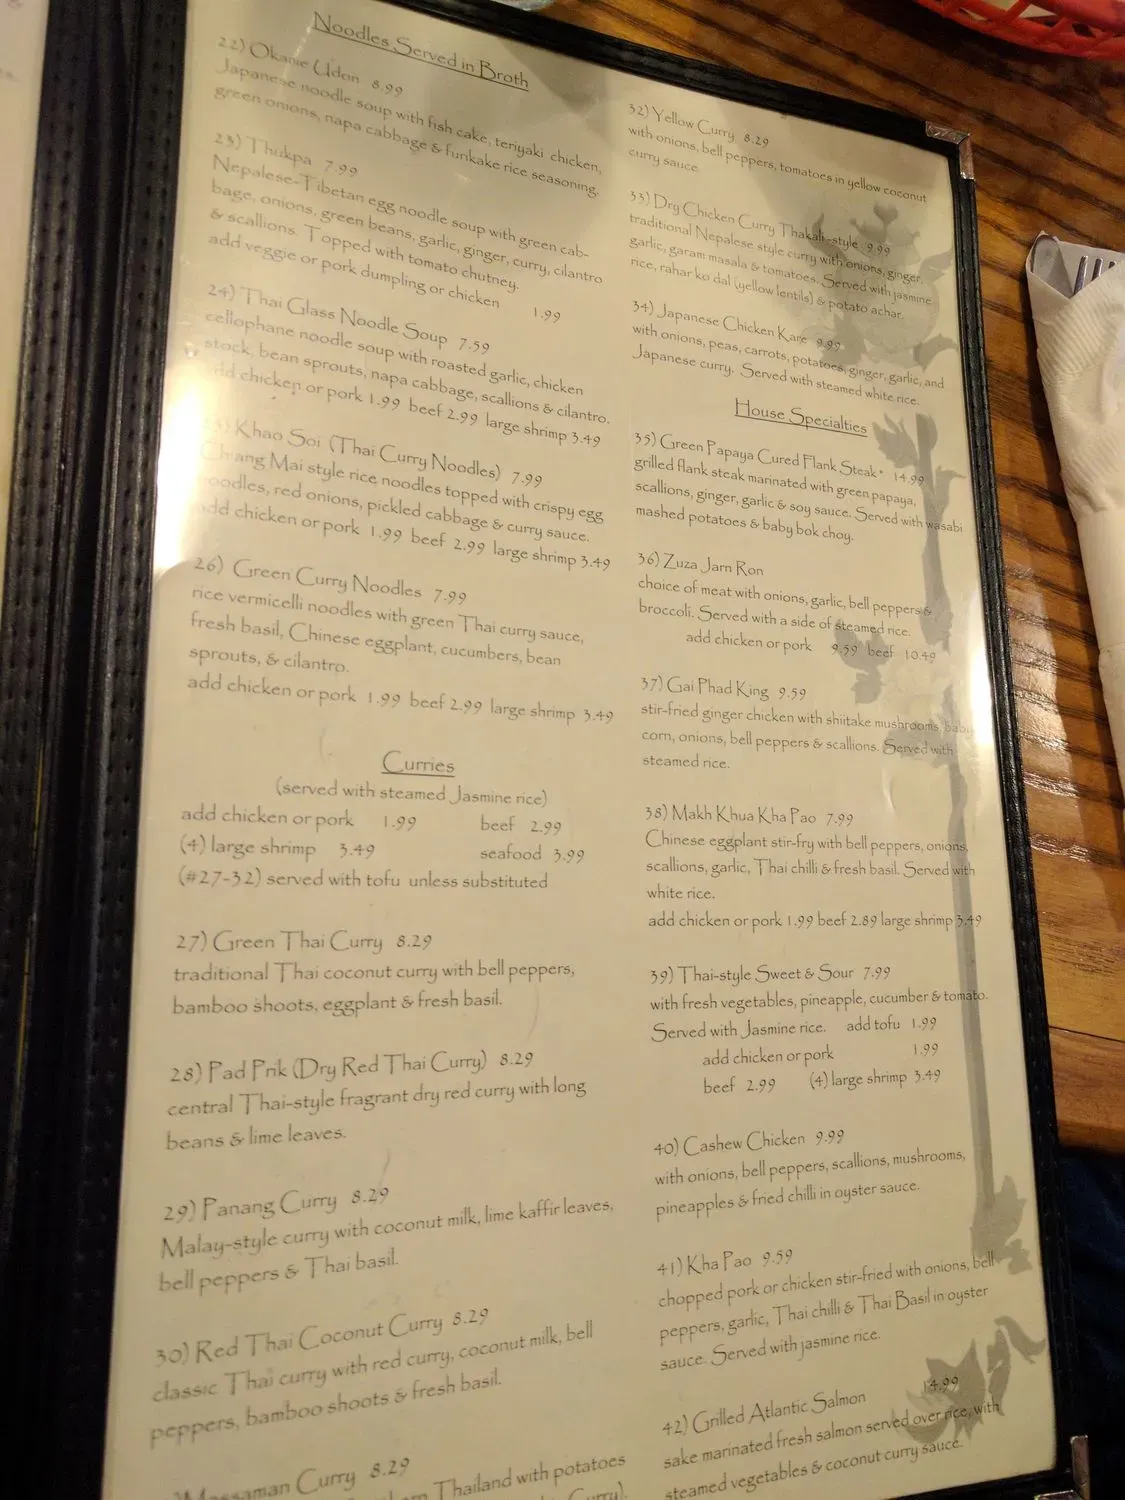 Noodles Served in Broth
22) Okame Udon 8.99
Japanese noodle soup with fish cake, teriyaki chicken,
green onions, napa cabbage & furikake rice seasoning.
23) Thukpa 7.99
Nepalese-Tibetan egg noodle soup with green cab-
bage, onions, green beans, garlic, ginger, curry, cilantro
& scallions. Topped with tomato chutney.
add veggie or pork dumpling or chicken 1.99
24) Thai Glass Noodle Soup 7.59
cellophane noodle soup with roasted garlic, chicken
stock, bean sprouts, napa cabbage, scallions & cilantro.
add chicken or pork 1.99 beef 2.99 large shrimp 3.49
Khao Soi (Thai Curry Noodles) 7.99
Chiang Mai style rice noodles topped with crispy egg
noodles, red onions, pickled cabbage & curry sauce.
add chicken or pork 1.99 beef 2.99 large shrimp 3.49
26) Green Curry Noodles 7.99
rice vermicelli noodles with green Thai curry sauce,
fresh basil, Chinese eggplant, cucumbers, bean
sprouts, & cilantro.
add chicken or pork 1.99 beef 2.99 large shrimp 3.49
Curries
(served with steamed Jasmine rice)
add chicken or pork 1.99 beef 2.99
(4) large shrimp 3.49 seafood 3.99
(#27-32) served with tofu unless substituted
27) Green Thai Curry 8.29
traditional Thai coconut curry with bell peppers,
bamboo shoots, eggplant & fresh basil.
28) Pad Prik (Dry Red Thai Curry) 8.29
central Thai-style fragrant dry red curry with long
beans & lime leaves.
29) Panang Curry 8.29
Malay-style curry with coconut milk, lime kaffir leaves,
bell peppers & Thai basil.
30) Red Thai Coconut Curry 8.29
classic Thai curry with red curry, coconut milk, bell
peppers, bamboo shoots & fresh basil.
Massaman Curry 8.29
Thailand with potatoes
Curry).
32) Yellow Curry 8.29
with onions, bell peppers, tomatoes in yellow coconut
curry sauce
33) Dry Chicken Curry Thakali-style 9.99
traditional Nepalese style curry with onions, ginger,
garlic, garam masala & tomatoes. Served with jasmine
rice, rahar ko dal (yellow lentils) & potato achar.
34) Japanese Chicken Kare 9.99
with onions, peas, carrots, potatoes, ginger, garlic, and
Japanese curry. Served with steamed white rice.
House Specialties
35) Green Papaya Cured Flank Steak* 14.99
grilled flank steak marinated with green papaya,
scallions, ginger, garlic & soy sauce. Served with wasabi
mashed potatoes & baby bok choy.
36) Zuza Jarn Ron
choice of meat with onions, garlic, bell peppers &
broccoli. Served with a side of steamed rice.
add chicken or pork 9.59 beef 10.49
37) Gai Phad King 9.59
stir-fried ginger chicken with shiitake mushrooms, baby
corn, onions, bell peppers & scallions. Served with
steamed rice.
38) Makh Khua Kha Pao 7.99
Chinese eggplant stir-fry with bell peppers, onions,
scallions, garlic, Thai chilli & fresh basil. Served with
white rice.
add chicken or pork 1.99 beef 2.89 large shrimp 3.49
39) Thai-style Sweet & Sour 7.99
with fresh vegetables, pineapple, cucumber & tomato.
Served with Jasmine rice. add tofu 1.99
add chicken or pork 1.99
beef 2.99 (4) large shrimp 3.49
40) Cashew Chicken 9.99
with onions, bell peppers, scallions, mushrooms,
pineapples & fried chilli in oyster sauce.
41) Kha Pao 9.59
chopped pork or chicken stir-fried with onions, bell
peppers, garlic, Thai chilli & Thai Basil in oyster
sauce. Served with jasmine rice.
42) Grilled Atlantic Salmon 14.99
sake marinated fresh salmon served over rice, with
steamed vegetables & coconut curry sauce.